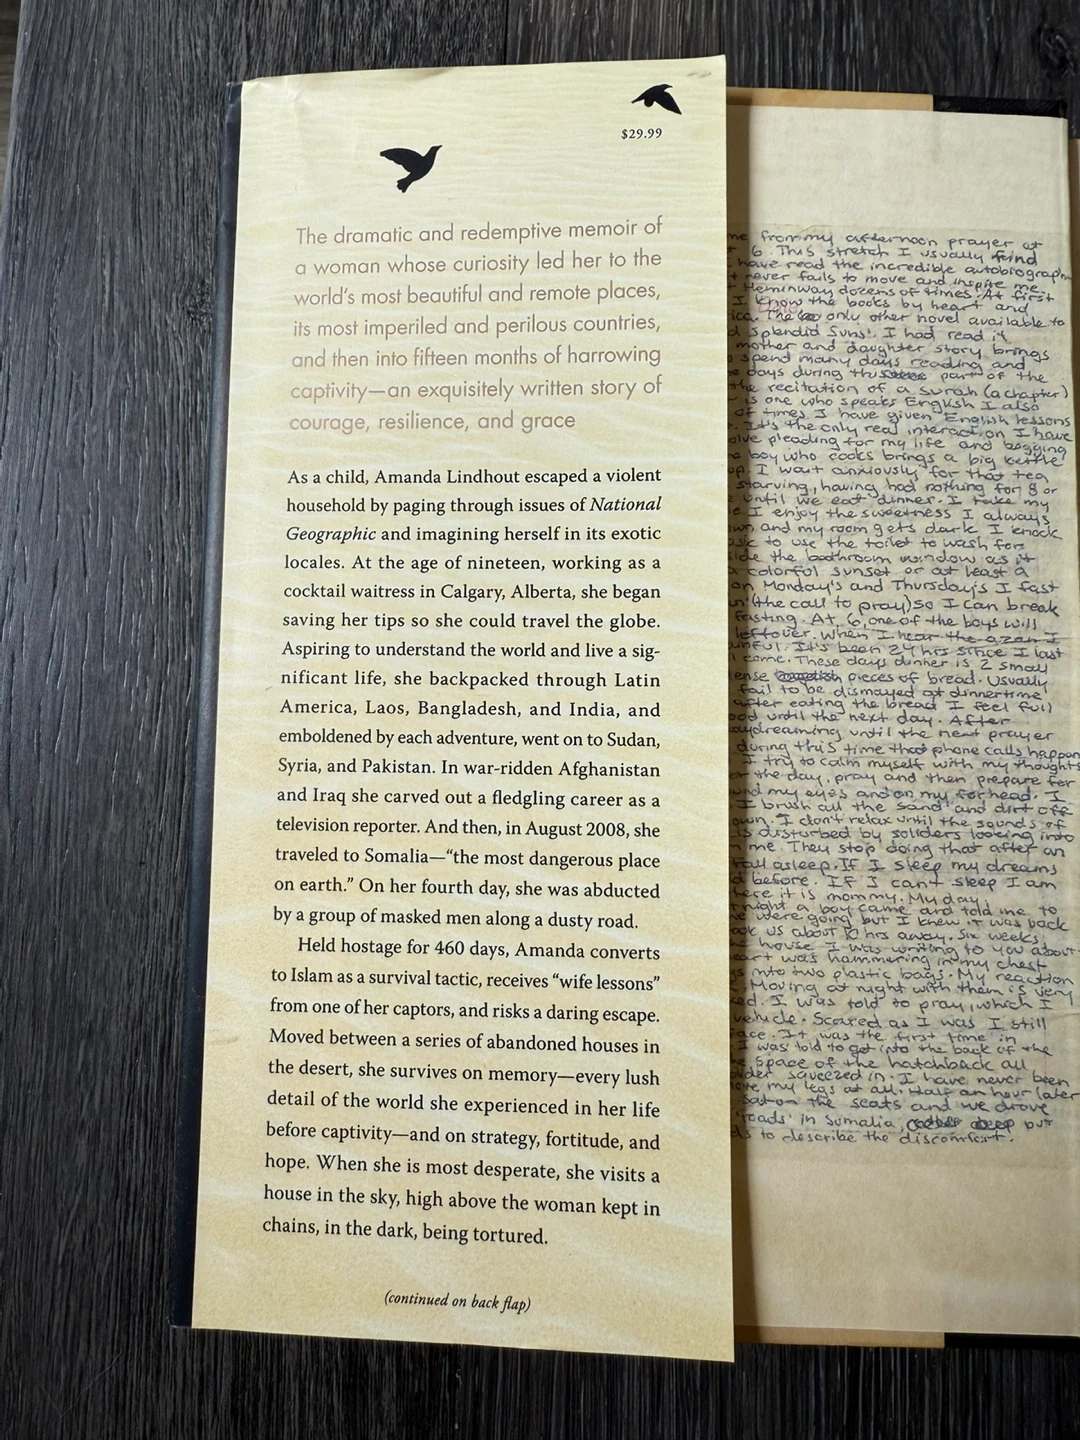 $29.99
The dramatic and redemptive memoir of
a woman whose curiosity led her to the
world's most beautiful and remote places,
its most imperiled and perilous countries,
and then into fifteen months of harrowing
captivity—an exquisitely written story of
courage, resilience, and grace
As a child, Amanda Lindhout escaped a violent
household by paging through issues of National
Geographic and imagining herself in its exotic
locales. At the age of nineteen, working as a
cocktail waitress in Calgary, Alberta, she began
saving her tips so she could travel the globe.
Aspiring to understand the world and live a sig-
nificant life, she backpacked through Latin
America, Laos, Bangladesh, and India, and
emboldened by each adventure, went on to Sudan,
Syria, and Pakistan. In war-ridden Afghanistan
and Iraq she carved out a fledgling career as a
television reporter. And then, in August 2008, she
traveled to Somalia—“the most dangerous place
on earth.” On her fourth day, she was abducted
by a group of masked men along a dusty road.
Held hostage for 460 days, Amanda converts
to Islam as a survival tactic, receives “wife lessons”
from one of her captors, and risks a daring escape.
Moved between a series of abandoned houses in
the desert, she survives on memory—every lush
detail of the world she experienced in her life
before captivity—and on strategy, fortitude, and
hope. When she is most desperate, she visits a
house in the sky, high above the woman kept in
chains, in the dark, being tortured.
(continued on back flap)
from my afternoon prayer at
6. This stretch I usually find
have read the incredible autobiography
never fails to move and inspire me.
Heminway dozens of times. At first
I know the books by heart and
The only other novel available to
Splendid Suns'. I had read it
mother and daughter story brings
spend many days reading and
days during this part of the
the recitation of a surah (a chapter)
is one who speaks English I also
of times I have given English lessons
It's the only real interaction I have
pleading for my life and begging
boy who cooks brings a big kettle
I wait anxiously for that tea,
starving, having had nothing for 8 or
until we eat dinner. I take my
I enjoy the sweetness I always
and my room gets dark I knock
to use the toilet to wash for
the bathroom window as it
colorful sunset or at least a
on Monday's and Thursday's I fast
(the call to pray) so I can break
fasting. At 6, one of the boys will
leftover. When I hear the azan I
It's been 24 hrs since I last
come. These days dinner is 2 small
pieces of bread. Usually
fail to be dismayed at dinnertime
after eating the bread I feel full
until the next day. After
daydreaming until the next prayer
during this time that phone calls happen
I try to calm myself with my thoughts
the day, pray and then prepare for
my eyes and on my forhead. I
I brush all the sand and dirt off
I don't relax until the sounds of
is disturbed by soliders looking into
me. They stop doing that after an
fall asleep. If I sleep my dreams
before. If I can't sleep I am
here it is mommy. My day.
night a boy came and told me to
were going but I knew it was back
us about 10 hrs away. Six weeks
house I was writing to you about
was hammering in my chest
into two plastic bags. My reaction
Moving at night with them is very
I was told to pray, which I
vehicle. Scared as I was I still
It was the first time in
I was told to get into the back of the
space of the hatchback all
squeezed in. I have never been
my legs at all. Half an hour later
sat on the seats and we drove
'roads' in Somalia, but
to describe the discomfort.